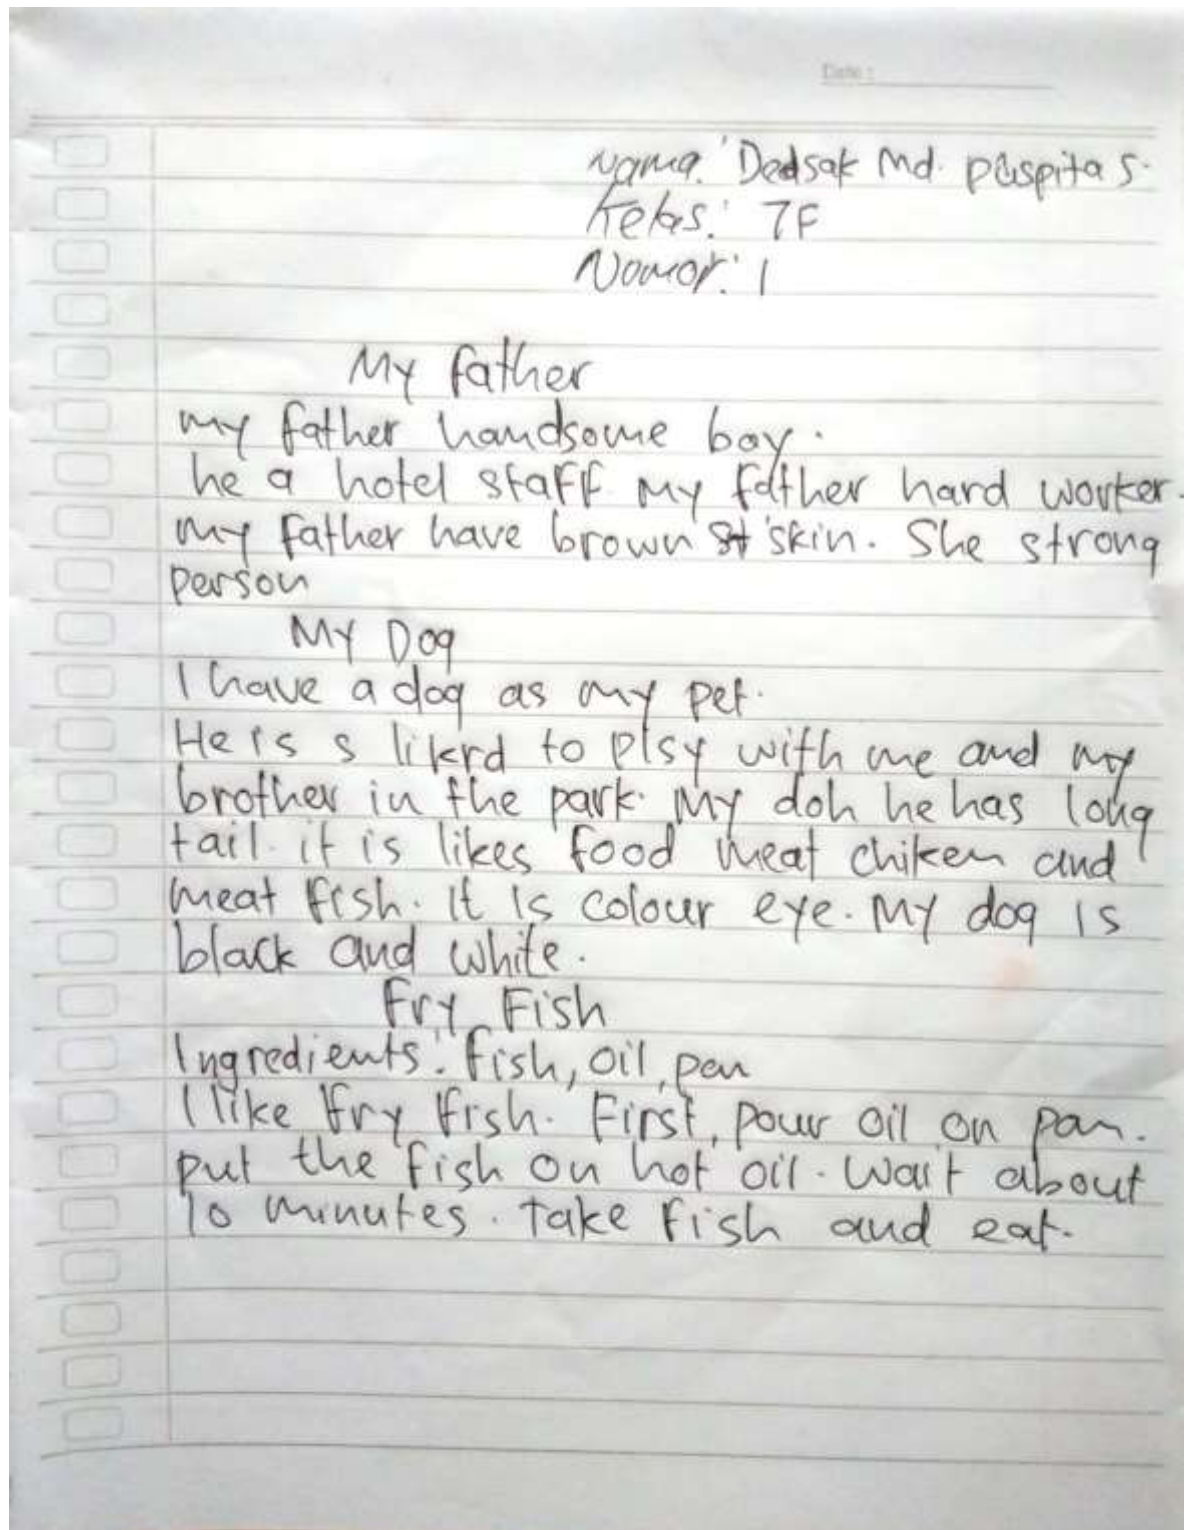 Date :
Nama: Dedsak Md. Puspita S.
Kelas: 7F
Nomor: 1
My father
my father handsome boy.
he a hotel staff. My father hard worker.
my father have brown st skin. She strong
person
My Dog
I have a dog as my pet.
He is s likrd to plsy with me and my
brother in the park. My doh he has long
tail. it is likes food meat chiken and
meat fish. It is colour eye. My dog is
black and white.
Fry Fish
Ingredients: fish, oil, pan
I like fry fish. First, pour oil on pan.
put the fish on hot oil. Wait about
10 minutes. Take fish and eat.